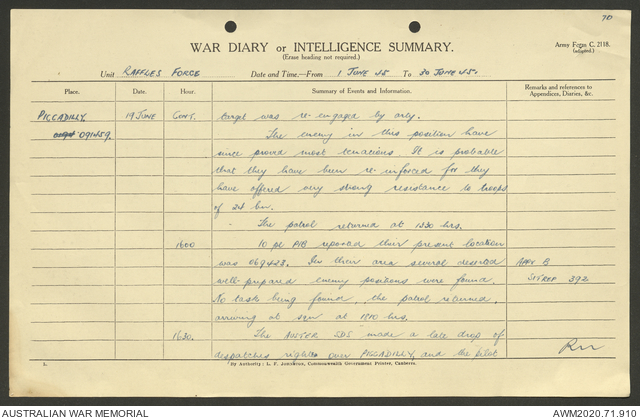 70
WAR DIARY or INTELLIGENCE SUMMARY.
(Erase heading not required.)
Army Form C. 2118.
(adapted.)
Unit RAFFLES FORCE Date and Time.—From 1 JUNE 45 To 30 JUNE 45.
Place. Date. Hour. Summary of Events and Information. Remarks and references to
Appendices, Diaries, &c.
PICCADILLY 19 JUNE CONT. target was re-engaged by arty.
091459. The enemy in this position have
since proved most tenacious. It is probable
that they have been re-inforced for they
have offered very strong resistance to troops
of 24 bn.
- The patrol returned at 1330 hrs.
1600 10 pl PIB reported their present location
was 069423. In their area several deserted APPX B
well-prepared enemy positions were found. SITREP 392
No tasks being found, the patrol returned,
arriving at 1810 hrs.
1630. The AUSTER SDS made a late drop of
despatches right over PICCADILLY, and the pilot
L.
By Authority: L. F. Johnston, Commonwealth Government Printer, Canberra.
AUSTRALIAN WAR MEMORIAL AWM2020.71.910